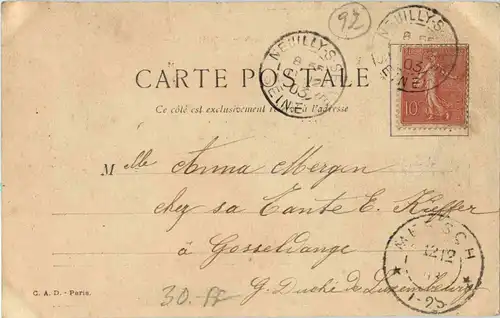 92
NEUILLY-S-S
8 SE
03
SEINE
NEUILLY-S-S
8 SE
03
SEINE
CARTE POSTALE
10
Ce côté est exclusivement réservé à l'adresse
Mlle Anna Mergen
chez sa Tante E. Kieffer
à Gosseldange
G. Duché de Luxembourg
MERSCH
12 12
03
1-2S
C. A. D. - Paris.
30.- FF